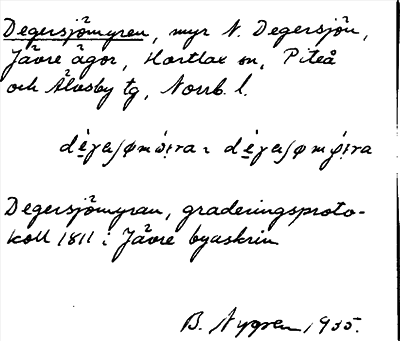 Degersjömyren, myr N. Degersjön,
Jävre ägor, Hortlax sn, Piteå
och Älvsby tg, Norrb. l.
Degersjömyran, graderingsproto-
koll 1811 i Jävre byaskrin
B. Nygren 1935.